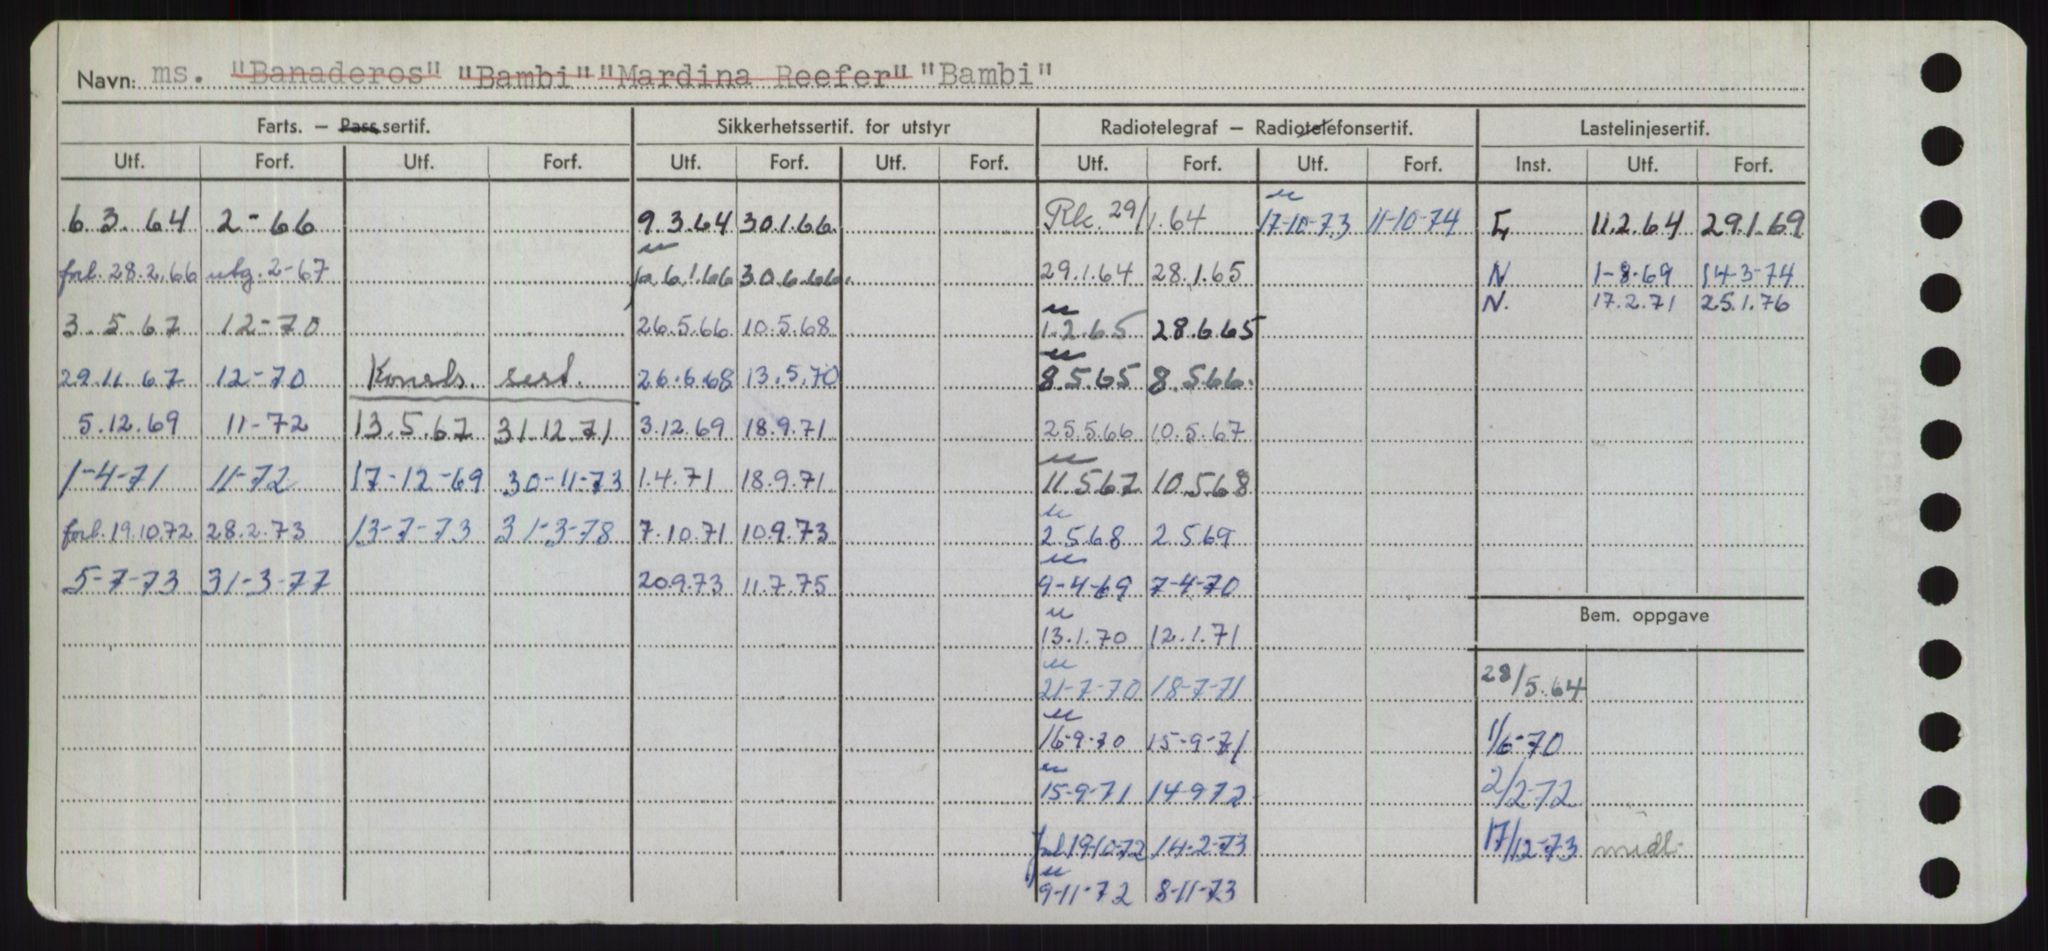 Navn: ms. "Banaderos" "Bambi" "Mardina Reefer" "Bambi"
Farts. – Pass sertif. Sikkerhetssertif. for utstyr Radiotelegraf – Radiotelefonsertif. Lastelinjesertif.
Utf. Forf. Utf. Forf. Utf. Forf. Utf. Forf. Utf. Forf. Utf. Forf. Inst. Utf. Forf.
6.3.64 2-66 9.3.64 30.1.66 Rk. 29/1.64 17-10-73 11-10-74 11.2.64 29.1.69
forl. 28.2.66 utg. 2-67 6.1.66 30.6.66. 29.1.64 28.1.65 N 1-8-69 14-3-74
N. 17.2.71 25.1.76
3.5.67 12-70 26.5.66 10.5.68 1.2.65 28.6.65
29.11.67 12-70 Konstr. sert. 26.6.68 13.5.70 8.5.65 8.5.66.
5.12.69 11-72 13.5.67 31.12.71 3.12.69 18.9.71 25.5.66 10.5.67
1-4-71 11-72 17-12-69 30-11-73 1.4.71 18.9.71 11.5.67 10.5.68
forl. 19.10.72 28.2.73 13-7-73 31-3-78 7.10.71 10.9.73 2.5.68 2.5.69
5-7-73 31-3-77 20.9.73 11.7.75 9-4-69 7-4-70
Bem. oppgave
13.1.70 12.1.71
21-7-70 18-7-71 28/5.64
16-9-70 15-9-71 1/6-70
15-9-71 14-9-72 2/2-72
forl 19-10-72 14-2-73 17/12-73 midl.
9-11-72 8-11-73